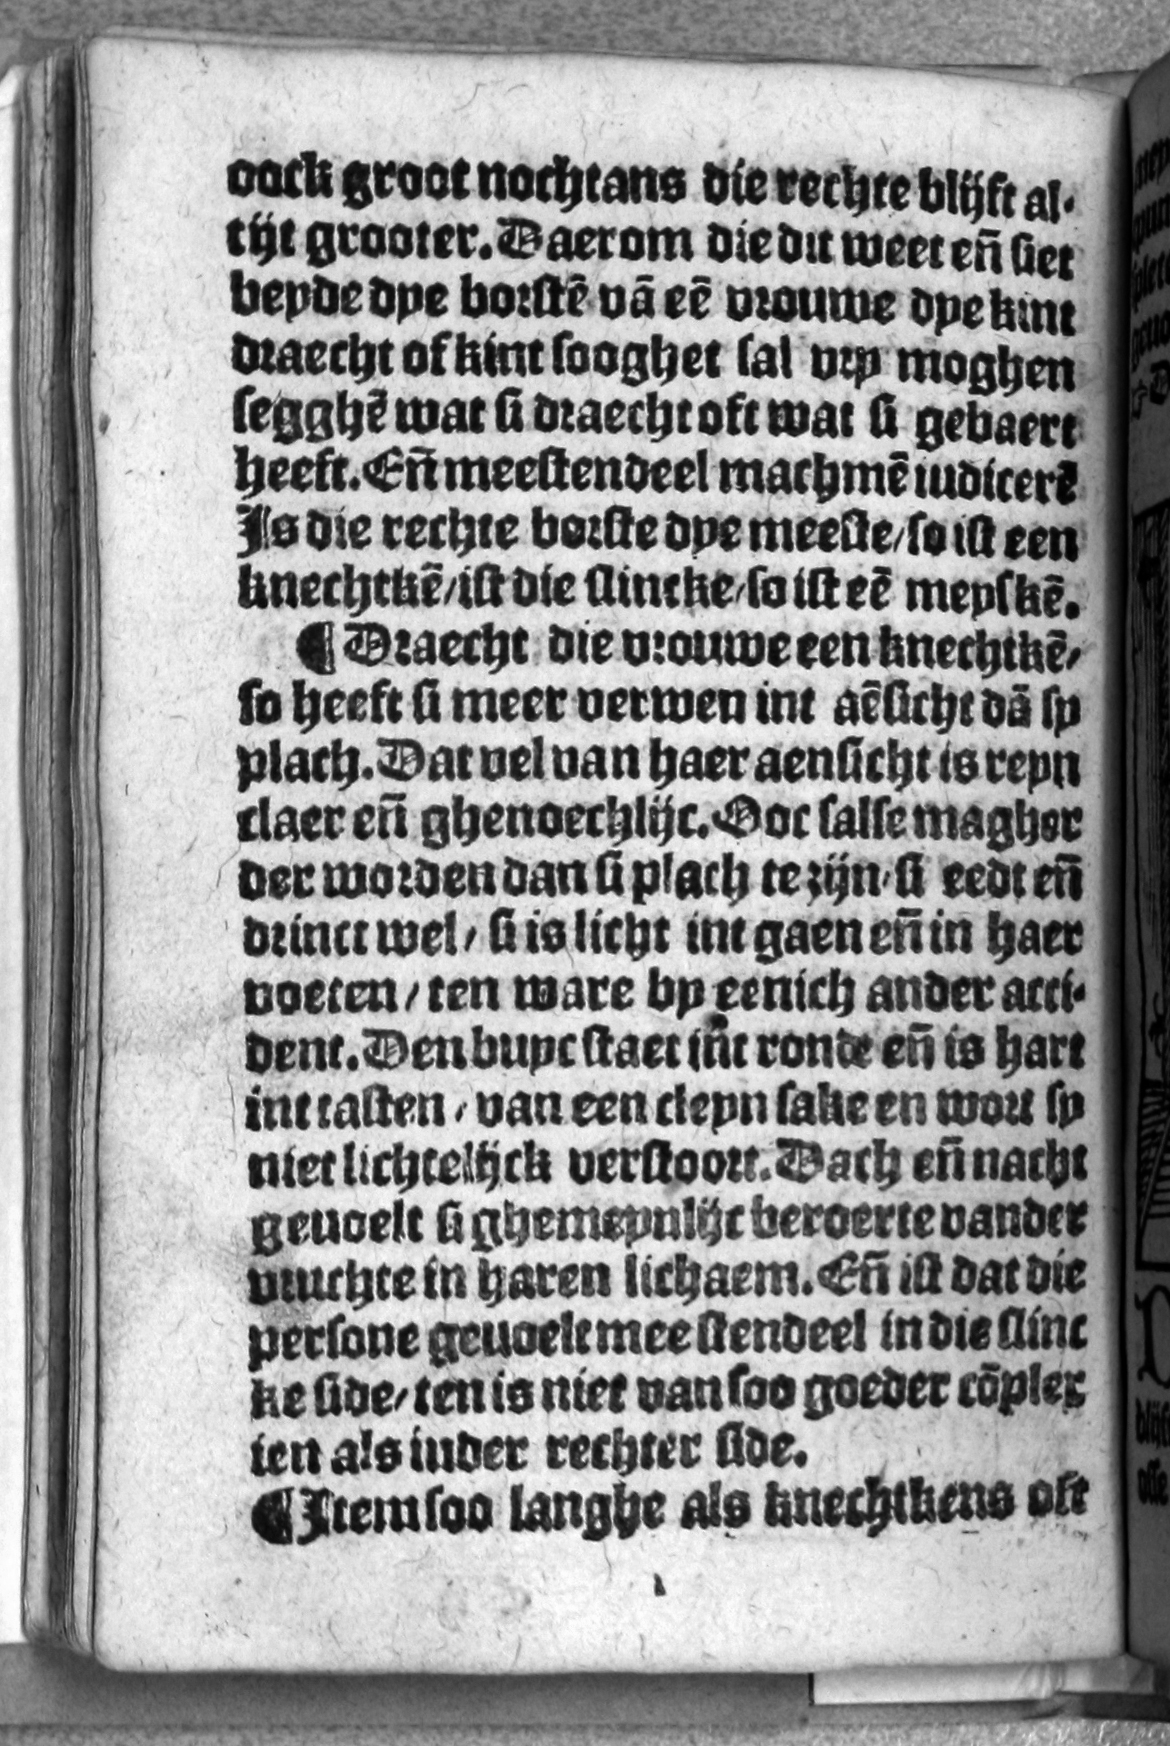 oock groot nochtans die rechte blijft al-
tijt grooter. Daerom die dit weet eñ siet
beyde dye borstē vā eē vrouwe dye kint
draecht of kint sooghet sal vry moghen
segghē wat si draecht oft wat si gebaert
heeft. Eñ meestendeel machmē iudicerē
Is die rechte borste dye meeste/so ist een
knechtkē/ist die slincke/so ist eē meyskē.
¶ Draecht die vrouwe een knechtkē/
so heeft si meer verwen int aēsicht dā sy
plach. Dat vel van haer aensicht is reyn
claer eñ ghenoechlijc. Ooc salse magher
der worden dan si plach te zijn/si eedt eñ
drinct wel/ si is licht int gaen eñ in haer
voeten/ ten ware by eenich ander acci-
dent. Den buyc staet int ronde eñ is hart
int tasten/ van een cleyn sake en wort sy
niet lichtelijck verstoort. Dach eñ nacht
geuoelt si ghemeynlijc beroerte vander
vruchte in haren lichaem. Eñ ist dat die
persone geuoelt meestendeel in die slinc
ke side/ten is niet van soo goeder cōplex
ien als inder rechter side.
¶ Item soo langhe als knechtkens oft